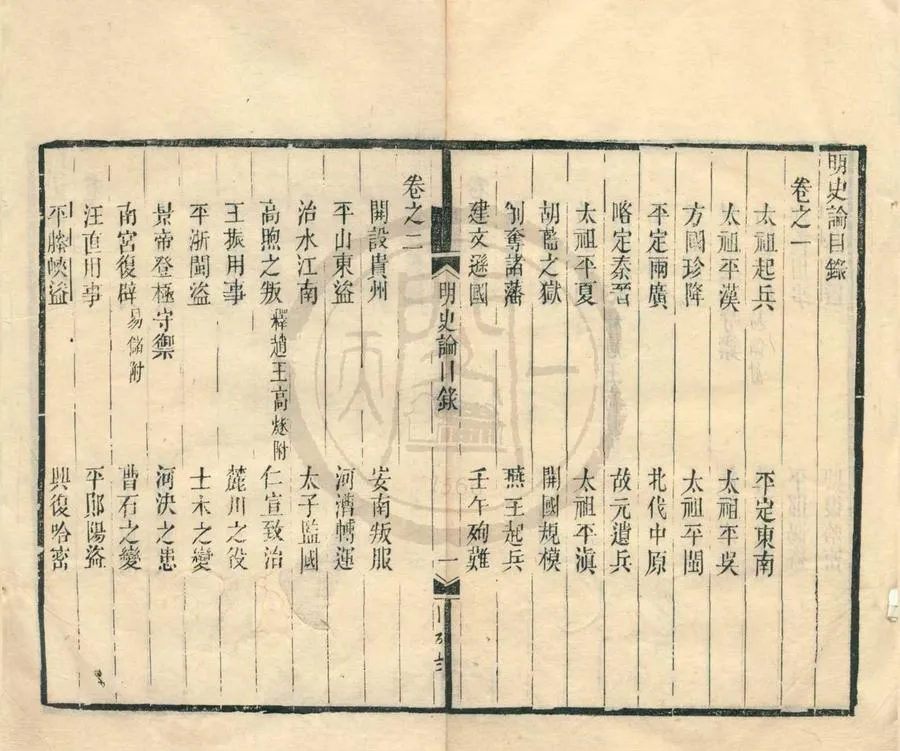 明史論目錄
卷之一
太祖起兵 平定東南
太祖平漢 太祖平吳
方國珍降 太祖平閩
平定兩廣 北伐中原
略定秦晉 故元遺兵
太祖平夏 太祖平滇
胡藍之獄 開國規模
削奪諸藩 燕王起兵
建文遜國 壬午殉難
明史論目錄 一
卷之二
開設貴州 安南叛服
平山東盜 河漕轉運
治水江南 太子監國
高煦之叛 釋趙王高燧附 仁宣致治
王振用事 麓川之役
平浙閩盜 土木之變
景帝登極守禦 河決之患
南宮復辟 易儲附 曹石之變
汪直用事 平鄖陽盜
平藤峽盜 興復哈密